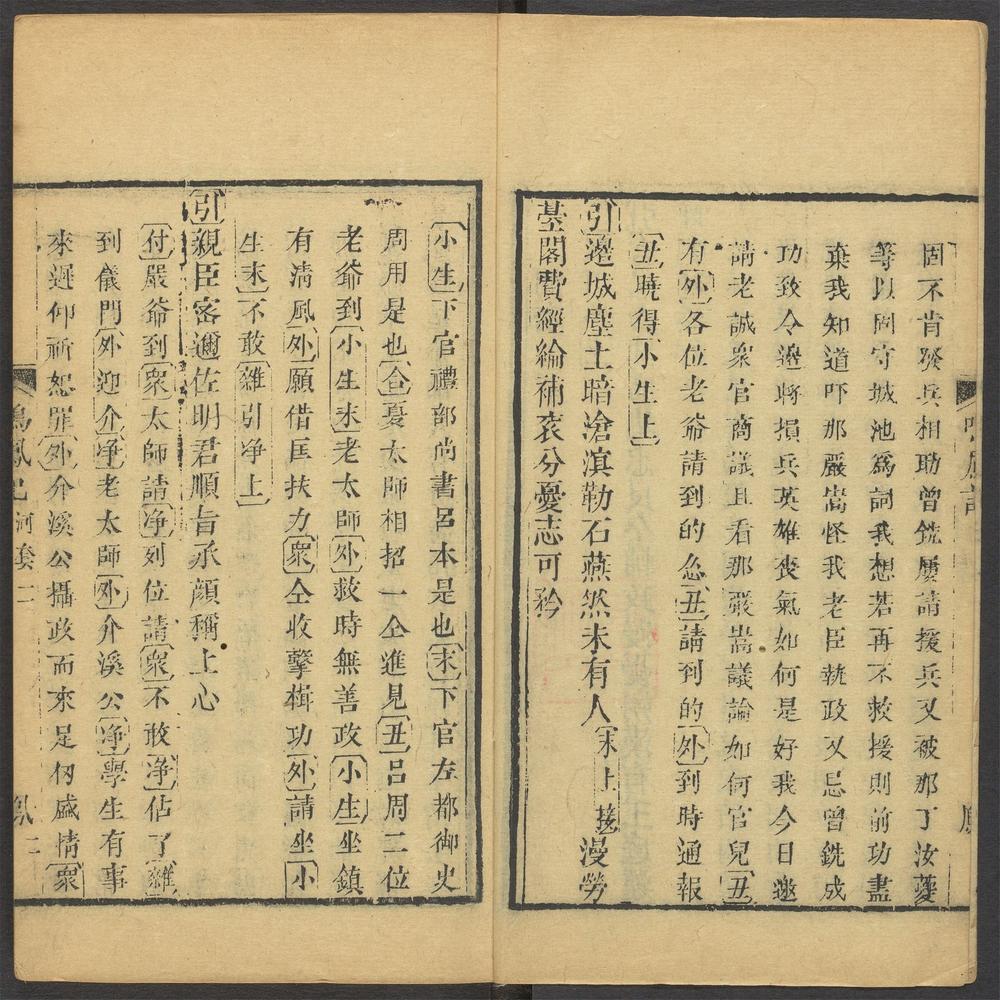 固不肯發兵相助曾銑屢請援兵又被那丁汝夔
等以固守城池爲詞我想若再不救援則前功盡
棄我知道吓那嚴嵩怪我老臣執政又忌曾銑成
功致令邊將損兵英雄喪氣如何是好我今日邀
請老誠衆官商議且看那嚴嵩議論如何官兒丑
有外各位老爺請到的麽丑請到的外到時通報
丑曉得小生上
引邊城塵土暗滄溟勒石燕然未有人末上接漫勞
臺閣費經綸補衮分憂志可矜
小生下官禮部尚書呂本是也末下官左都御史
周用是也合夏太師相招一仝進見丑呂周二位
老爺到小生末老太師外救時無善政小生坐鎮
有清風外願借匡扶力衆仝收擊楫功外請坐小
生末不敢雜引净上
引親臣密邇佐明君順旨承顔稱上心
付嚴爺到衆太師請净列位請衆不敢净佔了雜
到儀門外迎介净老太師外介溪公净學生有事
來遲仰祈恕罪外介溪公攝政而來足仞盛情衆
鳴鳳記 河套 二 鳳 二